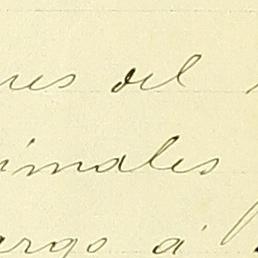 res del
nimales
argo á